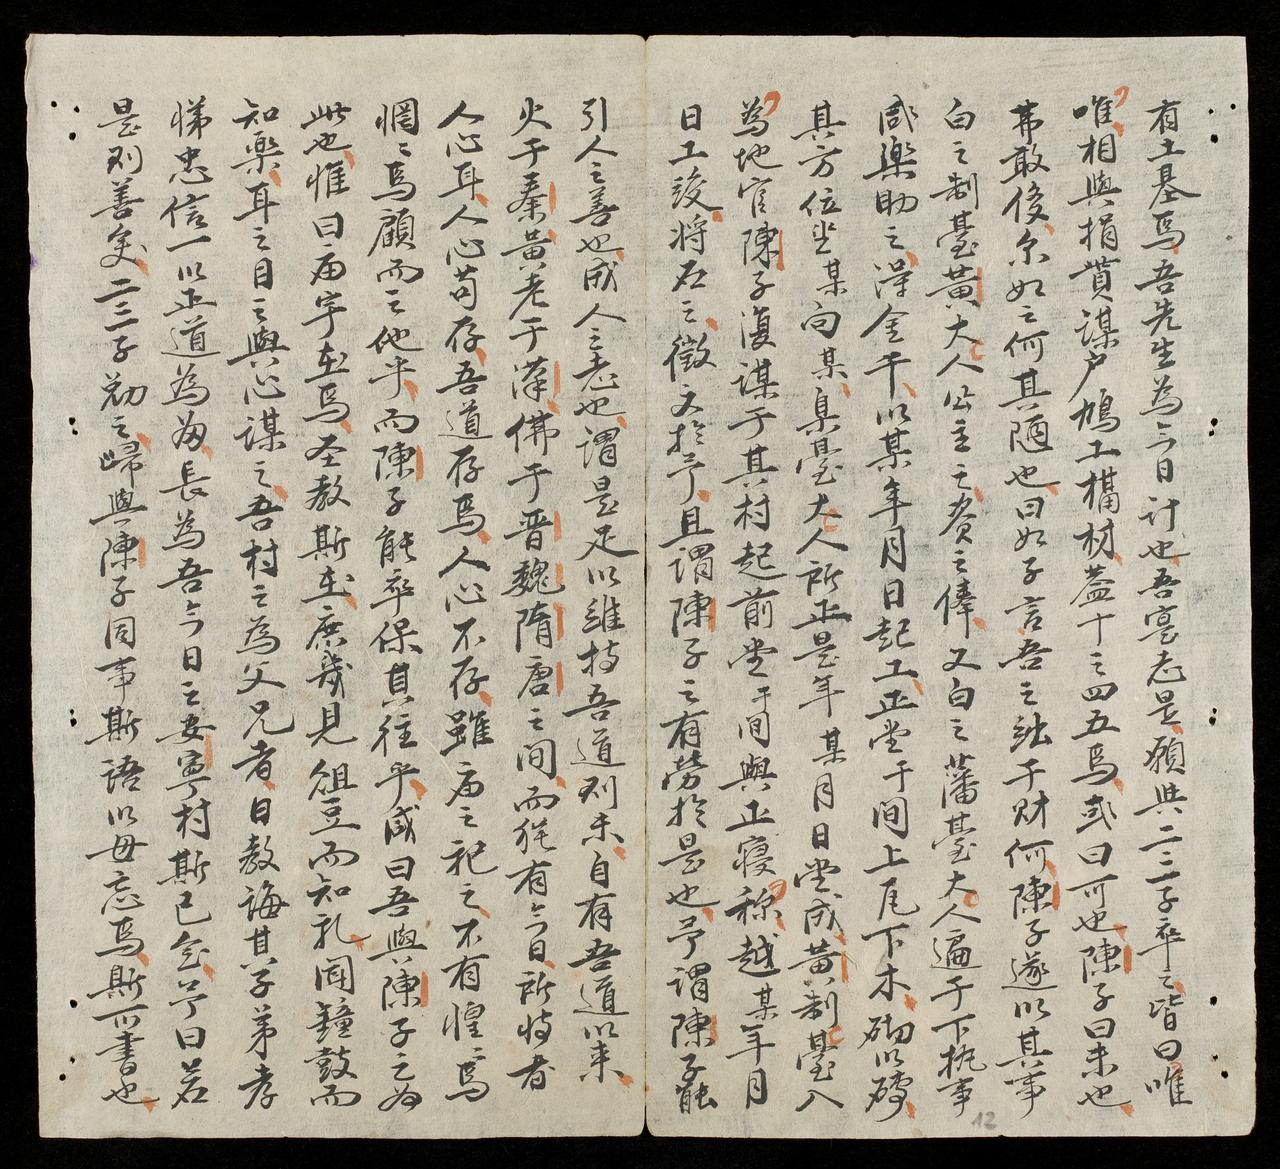 有土基焉吾先生為今日計也吾耄志是願與二三子卒之皆曰唯
唯相與捐貲謀户鳩工構材蓋十之四五焉或曰可也陳子曰未也
弗敢後尔如之何其陋也曰如子言吾之絀于財何陳子遂以其事
白之制臺黃大人公主之費之俸又白之藩臺大人遍于下執事
咸樂助之淂金千以某年月日起工正堂千間上瓦下木砌以磚
其方位坐某向某臬臺大人所正是年某月日堂成黃制臺入
為地官陳子復謀于其村起前堂于間與正寢称越某年月
日工竣将石之徵文於予且謂陳子之有勞於是也予謂陳子能
引人之善也成人之志也謂是足以維持吾道則未自有吾道以来
火于秦黃老于漢佛于晋魏隋唐之間而猶有今日所恃者
人心耳人心苟存吾道存焉人心不存雖庙之祀之不有惶〻焉
惘〻焉顧而之他乎而陳子能卒保其往乎咸曰吾與陳子之為
此也惟曰庙宇在焉圣教斯在庶幾見俎豆而知礼聞鐘鼓而
知樂耳之目之與心謀之吾村之為父兄者日教誨其子弟孝
悌忠信一以正道為為長為吾今日之安寧村斯已矣予曰若
是則善矣二三子勉之歸與陳子同事斯語以毋忘焉斯可書也
12